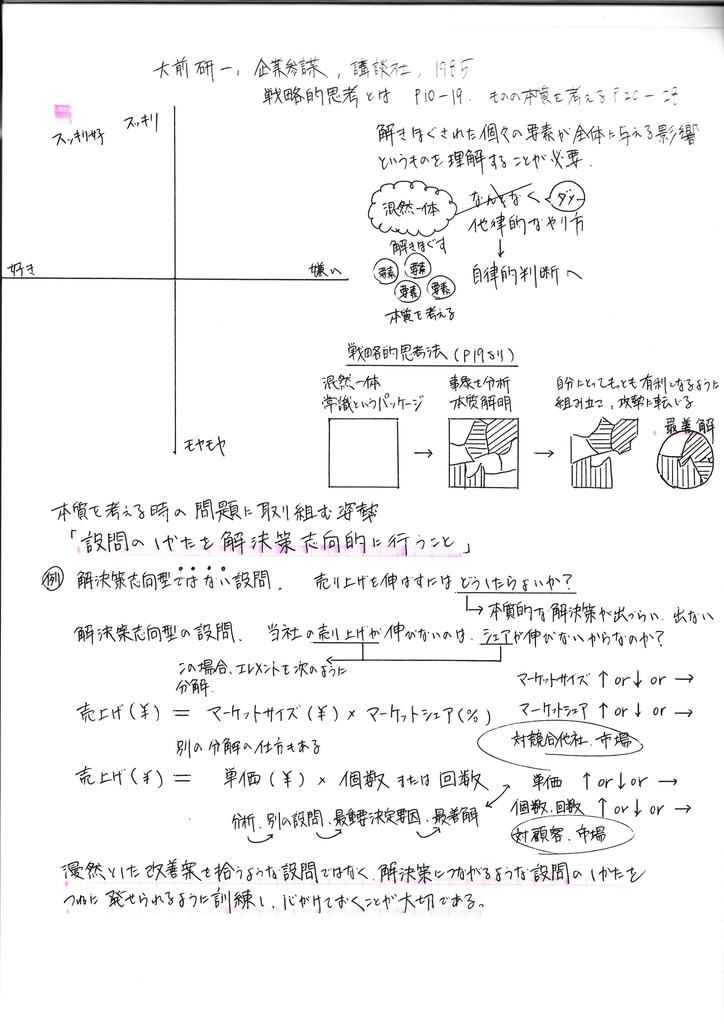 大前研一, 企業参謀, 講談社, 1985
戦略的思考とは P10-19. ものの本質を考える P20-28
スッキリ好
スッキリ
好き
嫌い
モヤモヤ
解きほぐされた個々の要素が全体に与える影響
というものを理解することが必要.
混然一体
なんとなく
ダメー
他律的なやり方
↓
自律的判断へ
解きほぐす
要素 要素
要素 要素
本質を考える
戦略的思考法 (P19より)
混然一体
常識というパッケージ
事象を分析
本質解明
自分にとってもっとも有利になるように
組み立て、攻撃に転じる
最善解
→ →
本質を考える時の問題に取り組む姿勢
「設問のしかたを解決策志向的に行うこと」
例 解決策志向型ではない設問. 売り上げを伸ばすにはどうしたらよいか?
→本質的な解決策が出づらい. 出ない
解決策志向型の設問. 当社の売り上げが伸びないのは、シェアが伸びないからなのか?
この場合、エレメントを次のように
分解.
マーケットサイズ ↑ or ↓ or →
売上げ(¥) = マーケットサイズ(¥) × マーケットシェア(%)
マーケットシェア ↑ or ↓ or →
対競合他社. 市場
別の分解の仕方もある
売上げ(¥) = 単価(¥) × 個数または回数
単価 ↑ or ↓ or →
個数. 回数 ↑ or ↓ or →
対顧客. 市場
分析. 別の設問. 最重要決定要因. 最善解
漫然とした改善案を拾うような設問ではなく、解決策につながるような設問のしかたを
つねに発せられるように訓練し、心がけておくことが大切である。